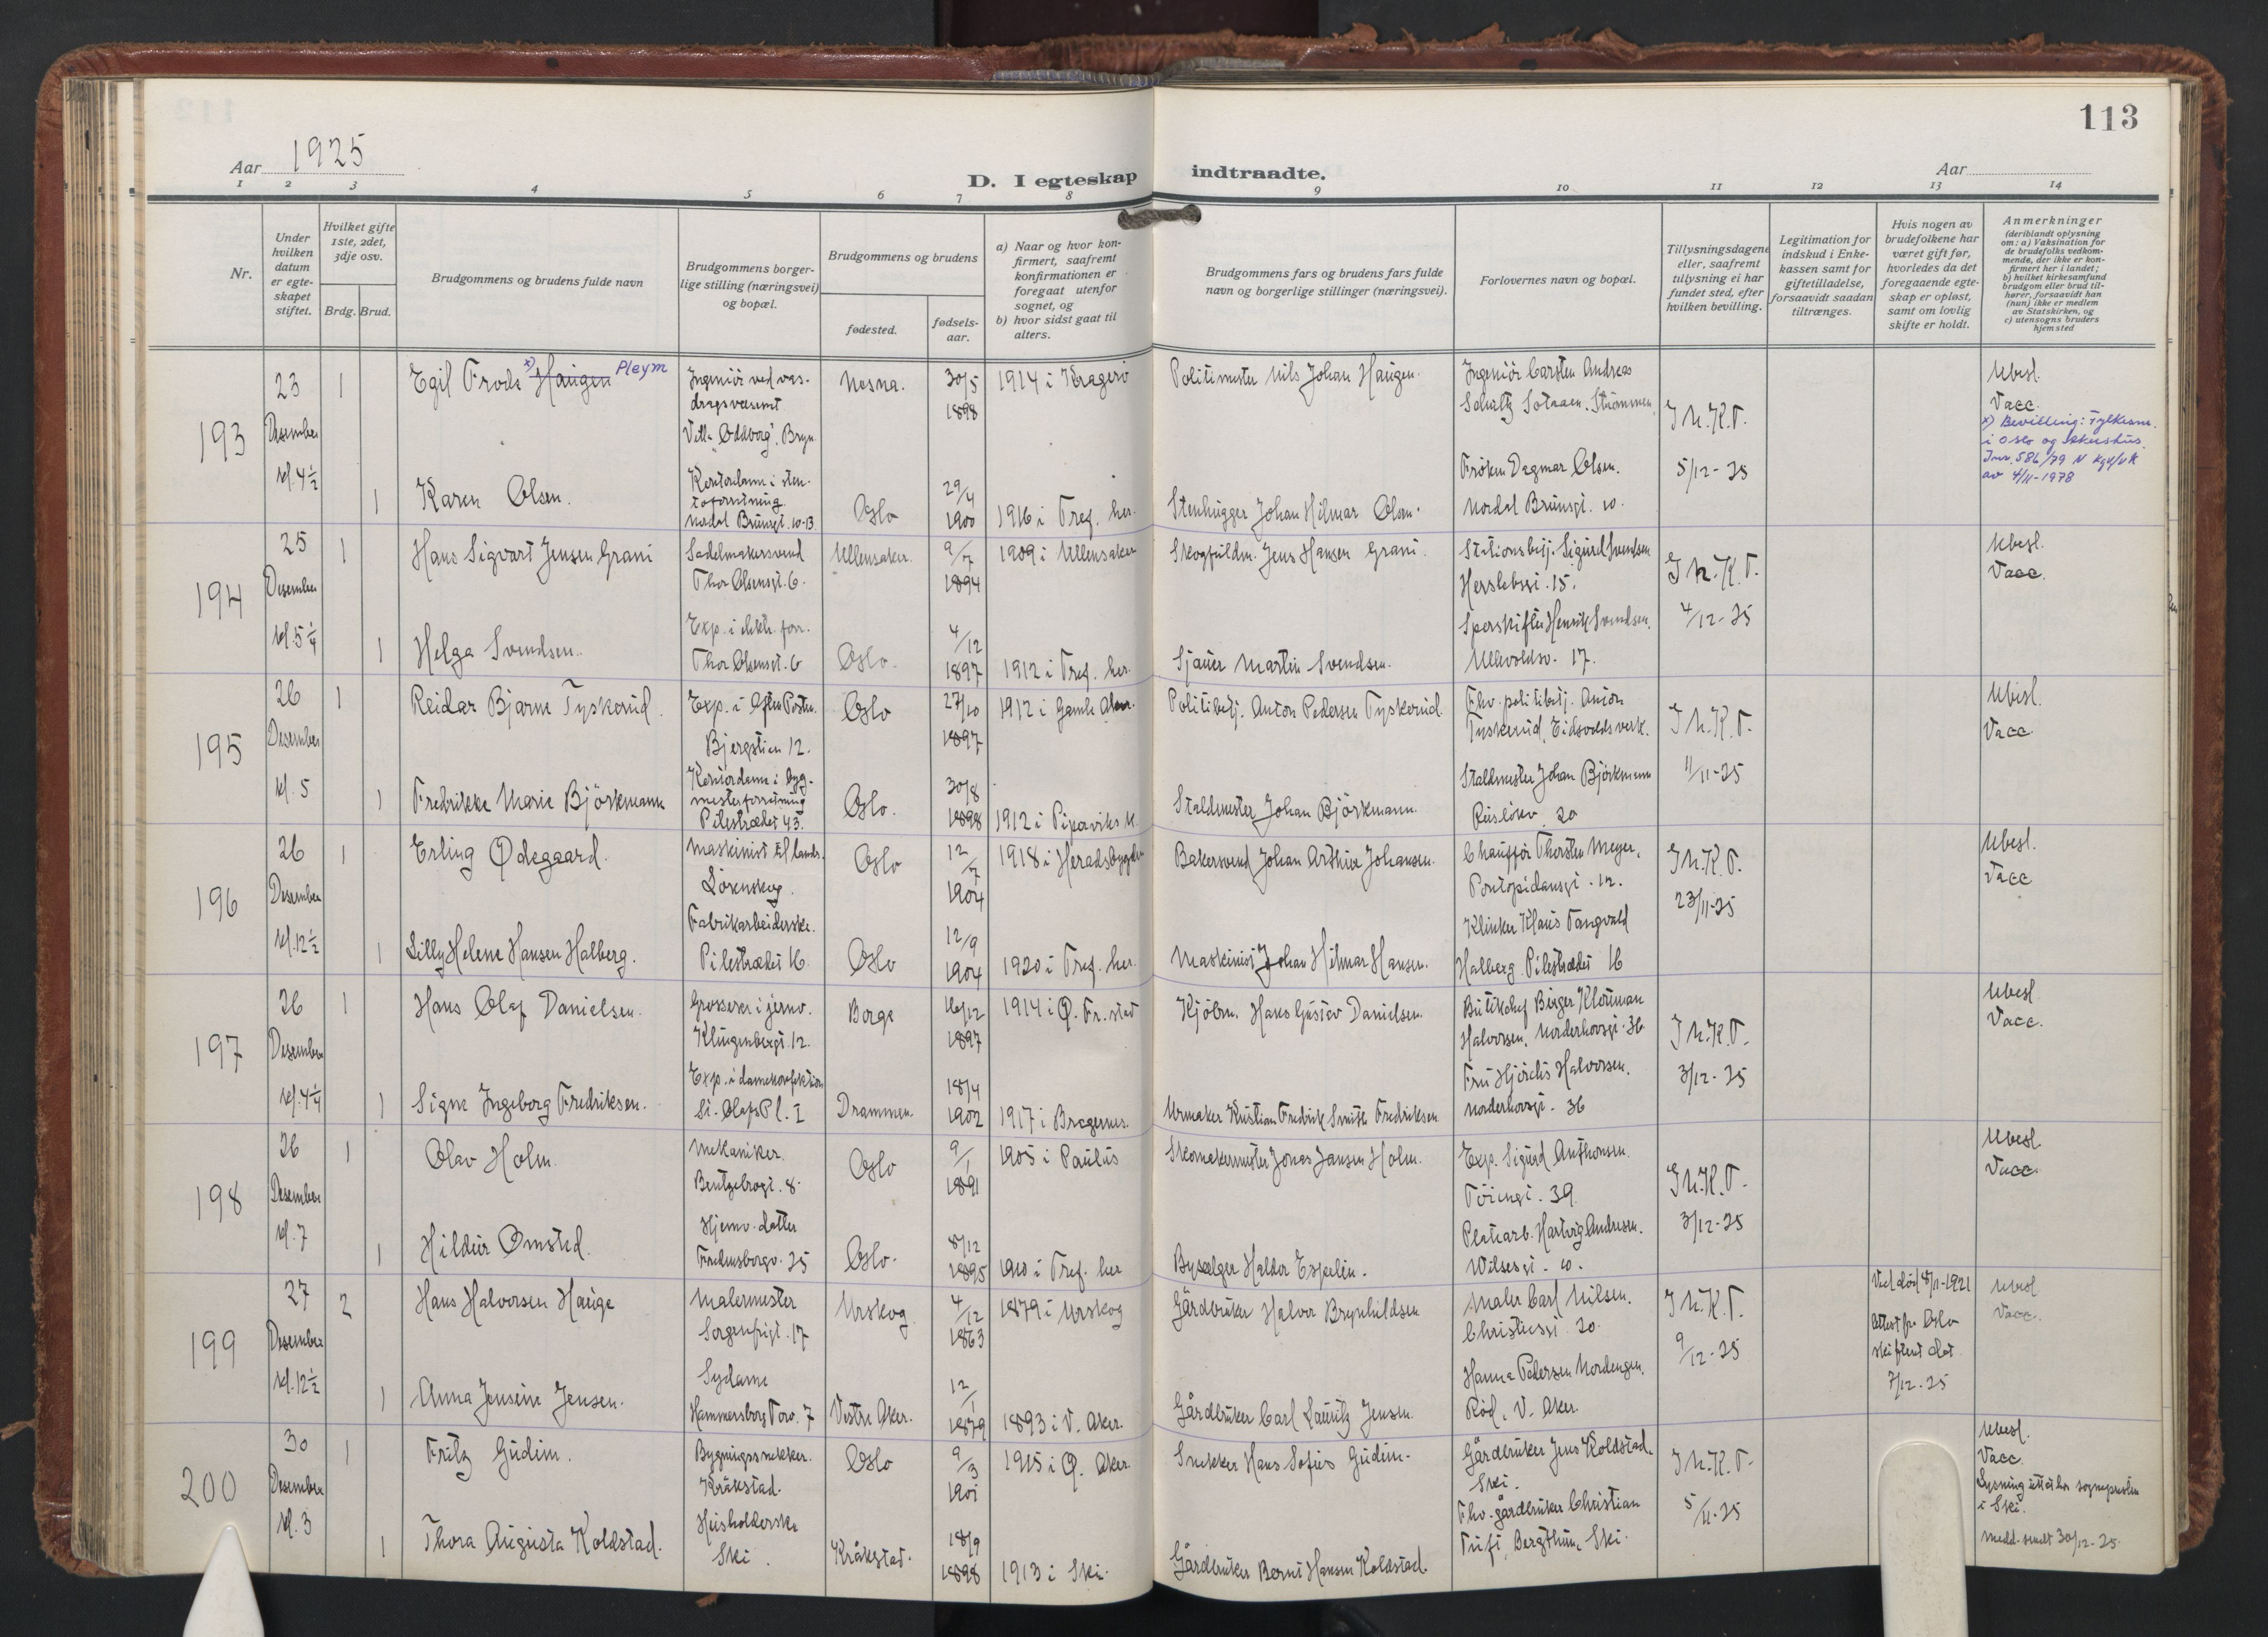 113
Aar 1925
D. I egteskap indtraadte.
Aar
1 2 3 4 5 6 7 8 9 10 11 12 13 14
Nr.
Under hvilken datum er egte-skapet stiftet.
Hvilket gifte 1ste, 2det, 3dje osv.
Brdg. Brud.
Brudgommens og brudens fulde navn
Brudgommens borger-lige stilling (næringsvei) og bopæl.
Brudgommens og brudens
fødested.
fødsels-aar.
a) Naar og hvor kon-firmert, saafremt konfirmationen er foregaat utenfor sognet, og
b) hvor sidst gaat til alters.
Brudgommens fars og brudens fars fulde navn og borgerlige stillinger (næringsvei).
Forlovernes navn og bopæl.
Tillysningsdagene eller, saafremt tillysning ei har fundet sted, efter hvilken bevilling.
Legitimation for indskud i Enke-kassen samt for giftetilladelse, forsaavidt saadan tiltrænges.
Hvis nogen av brudefolkene har været gift før, hvorledes da det foregaaende egte-skap er opløst, samt om lovlig skifte er holdt.
Anmerkninger (deriblandt oplysning om: a) Vaksination for de brudefolks vedkom-mende, der ikke er kon-firmert her i landet; b) hvilket kirkesamfund brudgom eller brud til-hører, forsaavidt han (hun) ikke er medlem av Statskirken, og c) utensogns bruders hjemsted
193
23 Desember kl. 4½
1 Egil Frode x) Haugen Pleym
Ingeniör ved vas-dragsvesent
Villa "Oddborg". Bryn
Nesna.
30/5 1898
1914 i Kragerö
Politimester Nils Johan Haugen.
Ingeniör Carsten Andreas Schultz Sotaaen. Strömmen.
I M.K.T.
5/12-25
Ubesl.
Vacc.
x) Bevilling: Fylkesm. i Oslo og Akershus
Jnr. 586/79 N
av 4/11-1978
1 Karen Olsen.
Kontordame i sten-töiforretning
Nordal Brunsgt. 10-13
Oslo
29/4 1900
1916 i Tref. her.
Stenhugger Johan Hilmar Olsen.
Fröken Dagmar Olsen.
Nordal Brunsgt. 10.
194
25 Desember kl. 5¼
1 Hans Sigvart Jensen Grani
Sadelmakersvend
Thor Olsensgt. 6.
Ullensaker.
9/7 1894
1909 i Ullensaker
Skogfuldm. Jens Hansen Grani.
Stationsbetj. Sigurd Svendsen
Herslebsgt. 15.
I M.K.T.
4/12-25
Ubesl.
Vacc.
1 Helga Svendsen.
Exp. i elektr. forr.
Thor Olsensgt. 6
Oslo.
4/12 1897
1912 i Tref. her.
Sjauer Martin Svendsen.
Sporskifter Henrik Svendsen.
Ullevoldsv. 17.
195
26 Desember kl. 5
1 Reidar Bjarne Tyskerud.
Exp. i Aften Posten.
Bjergstien 12.
Oslo
27/10 1897
1912 i Gamle Aker.
Politibetj. Anton Pedersen Tyskerud.
Fhv. politibetj. Anton
Tyskerud, Eidsvolds verk.
I M.K.T.
11/11-25
Ubesl.
Vacc.
1 Fredrikke Marie Björkmann
Kontordame i byg-mesterforretning
Pilestrædet 43.
Oslo.
30/8 1898
1912 i Piperviks k.
Staldmester Johan Björkmann.
Staldmester Johan Björkmann
Ruslökv. 20
196
26 Desember kl. 12½
1 Erling Ödegaard.
Maskinist til lands.
Lörenskog.
Oslo
12/7 1904
1918 i Heradsbygden
Bakersvend Johan Arthur Johansen.
Chauffør Thorsten Meyer.
Pontopidansgt. 12.
I M.K.T.
23/11-25
Ubesl.
Vacc
1 Lilly Helene Hansen Halberg.
Fabrikarbeiderske.
Pilestrædet 16.
Oslo
12/9 1904
1920 i Tref. her.
Maskinist Johan Hilmar Hansen.
Klinker Klaus Tangvald
Halberg. Pilestrædet 16
197
26 Desember kl. 4¼
1 Hans Olaf Danielsen.
Grosserer i jernv.
Klingenbergt. 12.
Borge
16/12 1897
1914 i Ö. Fr. stad
Kjöbm. Hans Gustav Danielsen.
Butikchef Birger Klouman
Halvorsen, Norderhovsgt. 36
I M.K.T.
3/12-25
Ubesl.
Vacc.
1 Signe Ingeborg Fredriksen.
Exp. i damekonfektion
St. Olafs Pl. I
Drammen.
18/4 1902
1917 i Bragernes.
Urmaker Kristian Fredrik Smith Fredriksen
Fru Hjördis Halvorsen.
Norderhovsgt. 36
198
26 Desember kl. 7
1 Olav Holm.
Mekaniker.
Bentzebrogt. 8.
Oslo
9/1 1891
1905 i Paulus
Skomakermester Jonas Jansen Holm.
Exp. Sigurd Anthonsen.
Töiengt. 39.
I M.K.T.
3/12-25
Ubesl.
Vacc.
1 Hildur Omsted.
Hjemv. datter
Fredensborgv. 25
Oslo.
8/12 1895
1910 i Tref. her
Byselger Haldor Espelin.
Platearb. Hartvig Andresen.
Wilsesgt. 10.
199
27 Desember kl. 12½
2 Hans Halvorsen Hauge
Malermester
Sorgenfrigt. 17
Urskog
4/12 1863
1879 i Urskog
Gårdbruker Halvor Brynhildsen
Maler Carl Nilsen.
Christiesgt. 20.
I M.K.T.
9/12-25
Ved död 8/11-1921
Attest fra Oslo skifteret dat. 7/12-25
Ubesl
Vacc.
1 Anna Jensine Jensen.
Sydame
Hammersborg Torv. 7
Vestre Aker.
12/1 1879
1893 i V. Aker.
Gårdbruker Carl Lauritz Jensen.
Hanna Pedersen Nordengen.
Röd, V. Aker.
200
30 Desember kl. 3
1 Fritz Gudim.
Bygningssnekker.
Kråkstad.
Oslo
9/3 1901
1915 i Ö. Aker.
Snekker Hans Sofus Gudim.
Gårdbruker Jens Koldstad.
Ski.
I M.K.T.
5/11-25
Ubesl.
Vacc.
Lysning sognepresten i Ski.
Medd. sendt 30/12-25.
1 Thora Augusta Koldstad.
Husholderske
Ski.
Kråkstad.
18/9 1898
1913 i Ski.
Gårdbruker Bernt Hansen Koldstad.
Fhv. gårdbruker Christian
Tufi, Bergthun, Ski.